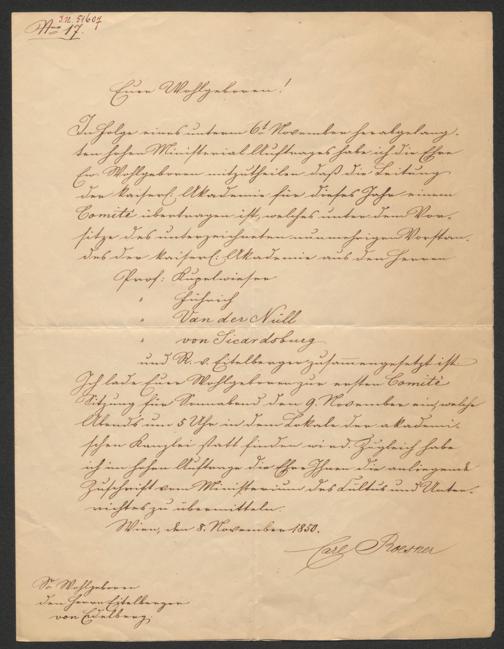 J.N. 51607
No 17.
Euer Wohlgeboren!
In Folge eines unterm 6t November herabgelang-
ten hohen Ministerial Auftrages habe ich die Ehre
Er. Wohlgeboren mitzutheilen daß die Leitung
der kaiserl. Akademie für dieses Jahr einem
Comité übertragen ist, welches unter dem Vor-
sitze des unterzeichneten nunmehrigen Vorstan-
des der kaiserl. Akademie aus den Herren
Prof: Kupelwieser
" Führich
" Van der Nüll
" von Sicardsburg
und R. v. Eitelberger zusammengesetzt ist
Ich lade Euer Wohlgeboren zur ersten Comité
Sitzung für Sonnabend den 9. November ein, welche
Abends um 5 Uhr in dem Lokale der akademi-
schen Kanzlei statt finden wird. Zugleich habe
ich im hohen Auftrage die Ehre Ihnen die anliegende
Zuschrift vom Ministerium des Cultus und Unter-
richtes zu übermitteln.
Wien, den 8. November 1850.
Carl Roesner
Sr Wohlgeboren
den Herrn Eitelberger
von Edelberg